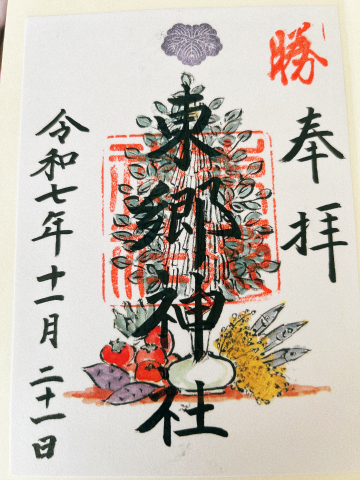 勝
奉拝
東郷神社
令和七年十一月二十一日